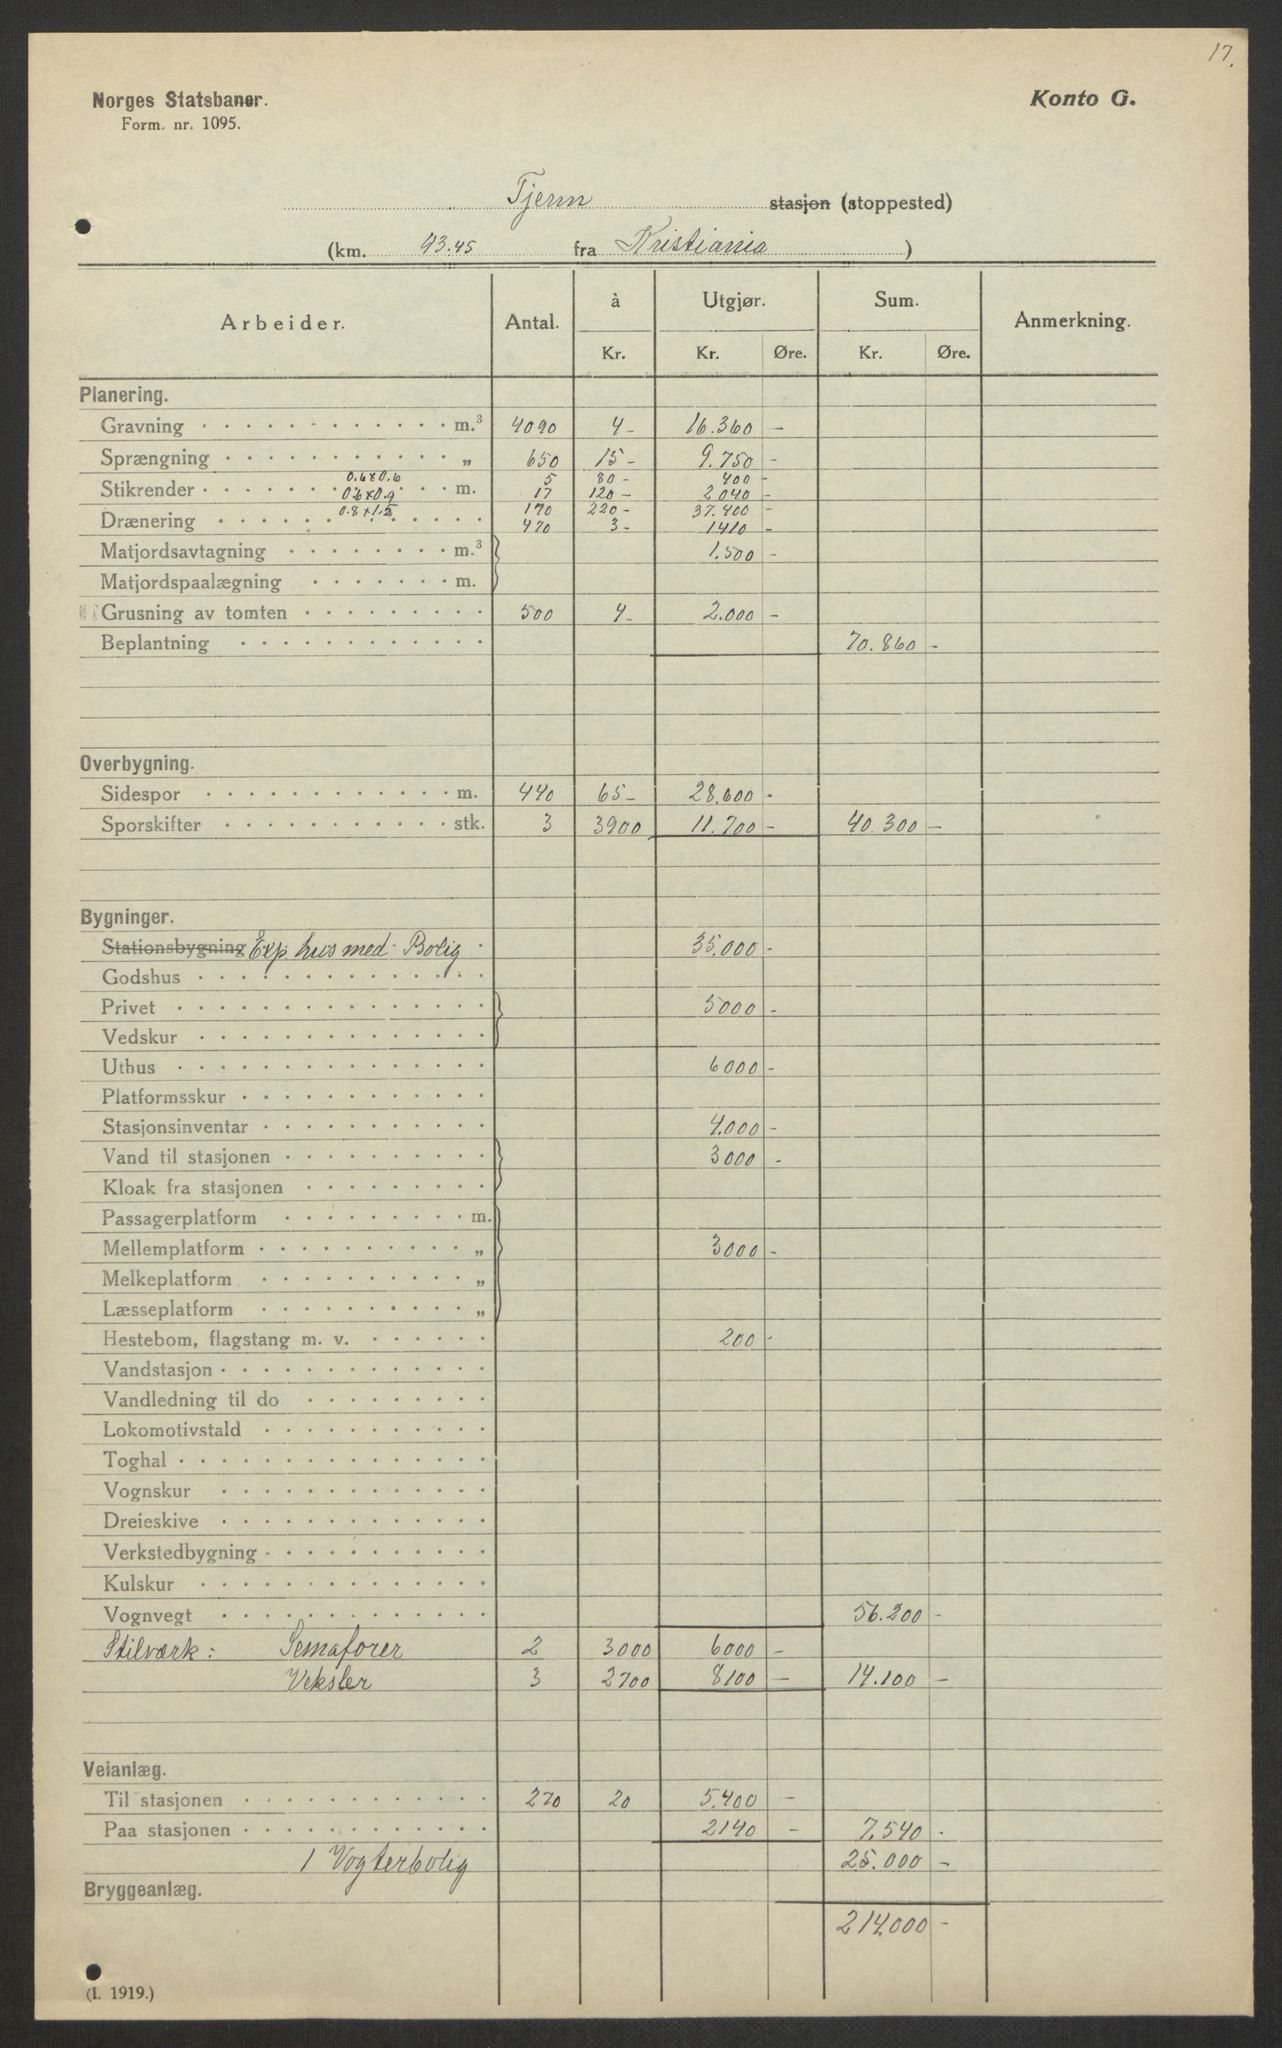 17.
Norges Statsbaner. Konto G.
Form. nr. 1095.
Tjerm stasjon (stoppested)
(km. 43.45 fra Kristiania )
Arbeider. Antal. à Utgjør. Sum. Anmerkning.
Kr. Kr. Øre. Kr. Øre.
Planering.
Gravning m.³ 4090 4- 16.360 -
Sprængning „ 650 15- 9.750 -
0.6x0.6 5 80- 400 -
Stikrender 0.6x0.9 m. 17 120- 2040 -
0.8x1.5 170 220- 37.400 -
Drænering 470 3- 1410 -
Matjordsavtagning m.³ 1.500 -
Matjordspaalægning m.
Grusning av tomten 500 4- 2.000 -
Beplantning 70.860 -
Overbygning.
Sidespor m. 440 65- 28.600 -
Sporskifter stk. 3 3900 11.700 - 40.300 -
Bygninger.
Stationsbygning Exp. hus med Bolig 35.000 -
Godshus
Privet 5000 -
Vedskur
Uthus 6000 -
Platformsskur
Stasjonsinventar 4.000 -
Vand til stasjonen 3000 -
Kloak fra stasjonen
Passagerplatform m.
Mellemplatform „ 3000 -
Melkeplatform „
Læsseplatform „
Hestebom, flagstang m. v. 200 -
Vandstasjon
Vandledning til do
Lokomotivstald
Toghal
Vognskur
Dreieskive
Verkstedbygning
Kulskur
Vognvegt 56.200 -
Stilværk: Semaforer 2 3000 6000 -
Veksler 3 2700 8100 - 14.100 -
Veianlæg.
Til stasjonen 270 20 5.400 -
Paa stasjonen 2140 - 7.540 -
1 Vogterbolig 25.000 -
Bryggeanlæg.
214.000 -
(I. 1919.)